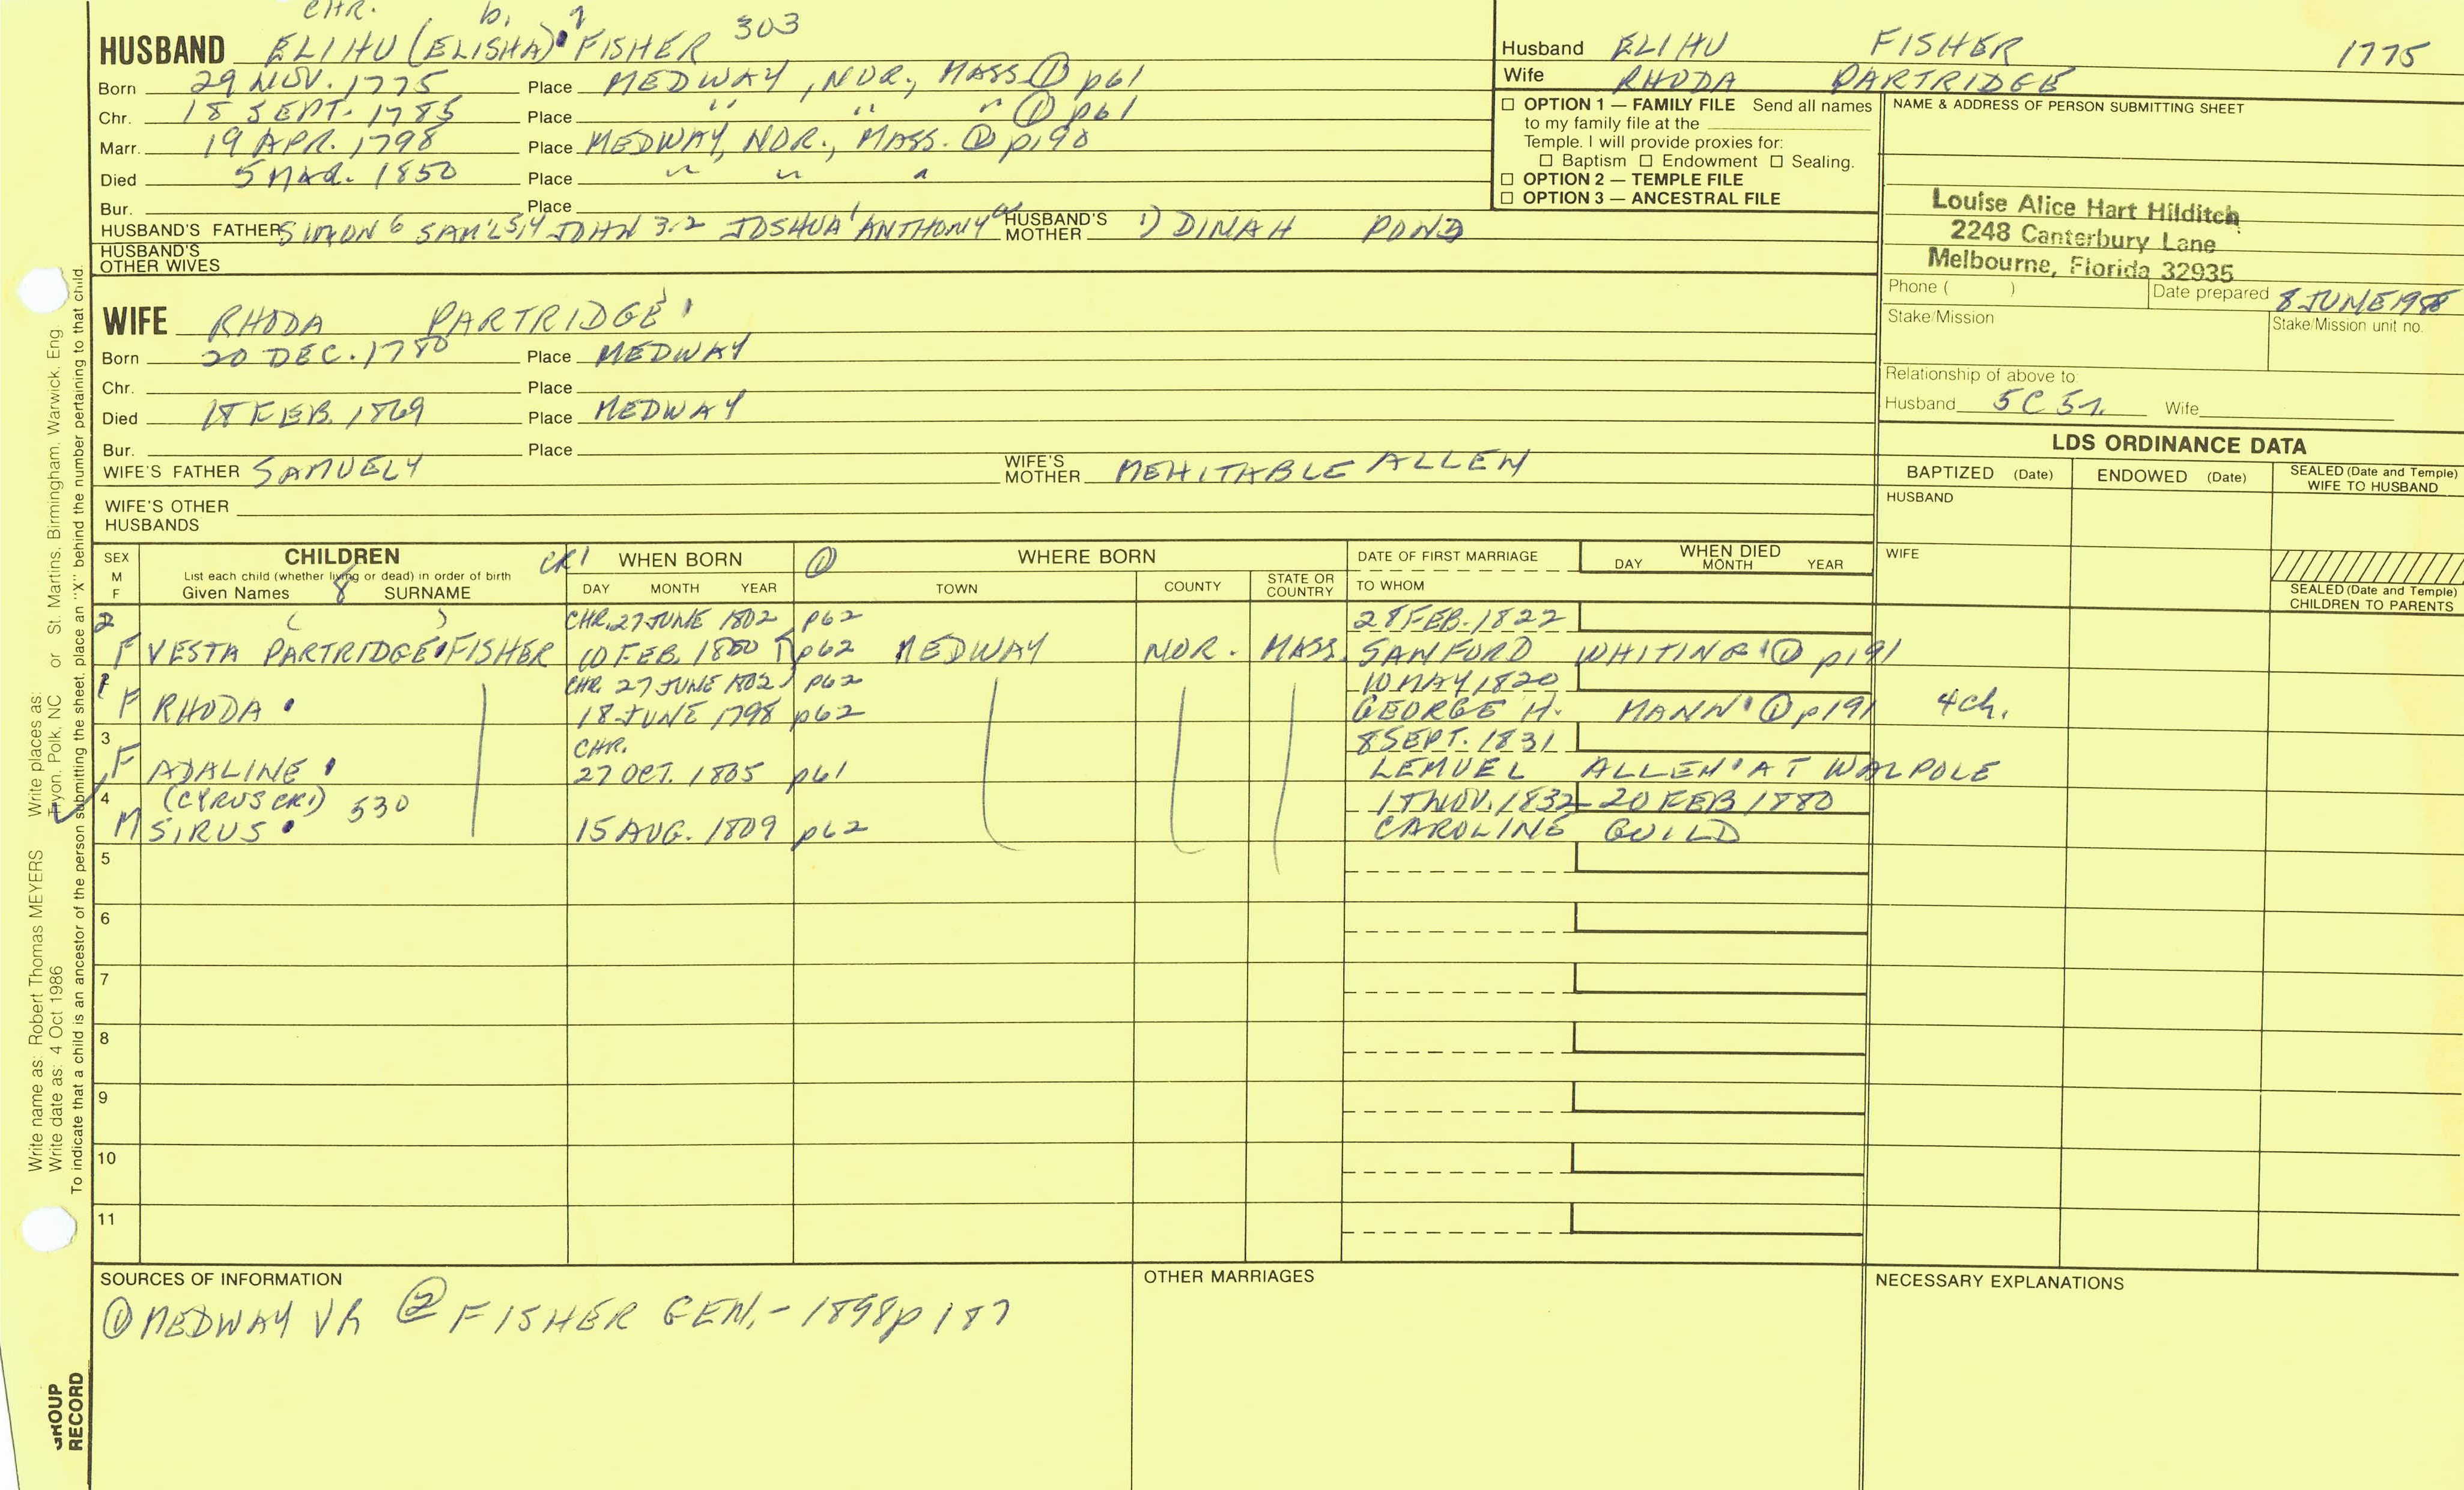 CHR. b.
HUSBAND ELIHU (ELISHA) FISHER 303
Born 29 NOV. 1775 Place MEDWAY, NOR., MASS ① p61
Chr. 18 SEPT. 1785 Place " " " ① p61
Marr. 19 APR. 1798 Place MEDWAY, NOR., MASS. ① p190
Died 5 MAR. 1850 Place " " "
Bur. Place
HUSBAND'S FATHER SIMON 6 SAM'L 5,4 JOHN 3.2 JOSHUA 1 ANTHONY HUSBAND'S MOTHER 1) DINAH POND
HUSBAND'S OTHER WIVES
Husband ELIHU FISHER 1775
Wife RHODA PARTRIDGE
☐ OPTION 1 — FAMILY FILE Send all names
to my family file at the
Temple. I will provide proxies for:
☐ Baptism ☐ Endowment ☐ Sealing.
☐ OPTION 2 — TEMPLE FILE
☐ OPTION 3 — ANCESTRAL FILE
NAME & ADDRESS OF PERSON SUBMITTING SHEET
Louise Alice Hart Hilditch
2248 Canterbury Lane
Melbourne, Florida 32935
Phone ( ) Date prepared 8 JUNE 1988
Stake/Mission Stake/Mission unit no.
Relationship of above to:
Husband 5C 5r. Wife
WIFE RHODA PARTRIDGE
Born 20 DEC. 1780 Place MEDWAY
Chr. Place
Died FEB. 1869 Place MEDWAY
Bur. Place
WIFE'S FATHER SAMUEL 4 WIFE'S MOTHER MEHITABLE ALLEN
WIFE'S OTHER HUSBANDS
LDS ORDINANCE DATA
BAPTIZED (Date) ENDOWED (Date) SEALED (Date and Temple) WIFE TO HUSBAND
HUSBAND
WIFE
SEALED (Date and Temple) CHILDREN TO PARENTS
SEX M F CHILDREN CR1 WHEN BORN ① WHERE BORN DATE OF FIRST MARRIAGE WHEN DIED
List each child (whether living or dead) in order of birth
Given Names 8 SURNAME DAY MONTH YEAR TOWN COUNTY STATE OR COUNTRY TO WHOM DAY MONTH YEAR
2 ( ) CHR. 27 JUNE 1802 p62 28 FEB. 1822
F VESTA PARTRIDGE FISHER 10 FEB. 1800 p62 MEDWAY NOR. MASS. SANFORD WHITING ① p191
1 CHR. 27 JUNE 1802 p62 10 MAY 1820
F RHODA 18 JUNE 1798 p62 GEORGE H. MANN ① p191 4 ch.
3 CHR. 8 SEPT. 1831
F ADALINE 27 OCT. 1805 p61 LEMUEL ALLEN AT WALPOLE
4 (CYRUS CR1) 530 NOV. 1832 20 FEB 1880
M SIRUS 15 AUG. 1809 p62 CAROLINE GUILD
5
6
7
8
9
10
11
SOURCES OF INFORMATION
① MEDWAY VR ② FISHER GEN. - 1898 p 187
OTHER MARRIAGES
NECESSARY EXPLANATIONS
Write name as: Robert Thomas MEYERS Write places as:
Write date as: 4 Oct 1986 Tryon, Polk, NC or St. Martins, Birmingham, Warwick, Eng
To indicate that a child is an ancestor of the person submitting the sheet, place an "X" behind the number pertaining to that child.
GROUP
RECORD